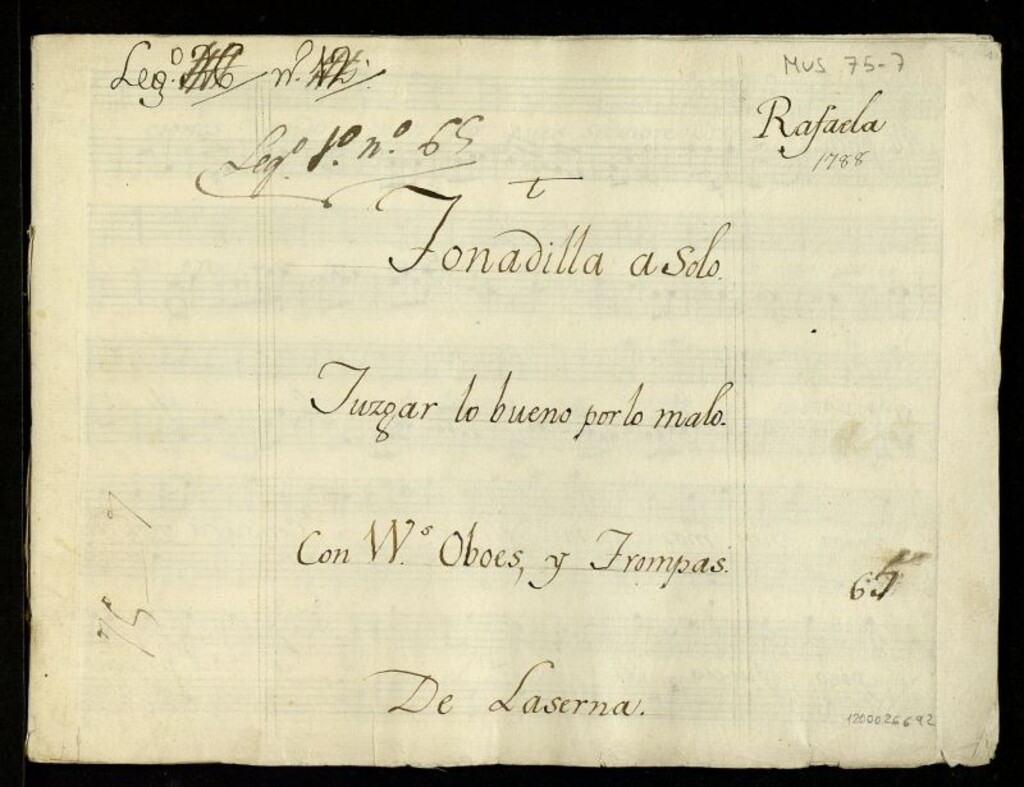 Legº nº
MUS 75-7
Legº 1º nº 65
Rafaela
1788
t
Tonadilla a Solo.
Juzgar lo bueno por lo malo.
Con Wˢ. Oboes, y Trompas.
65
75-7
De Laserna.
1200026692